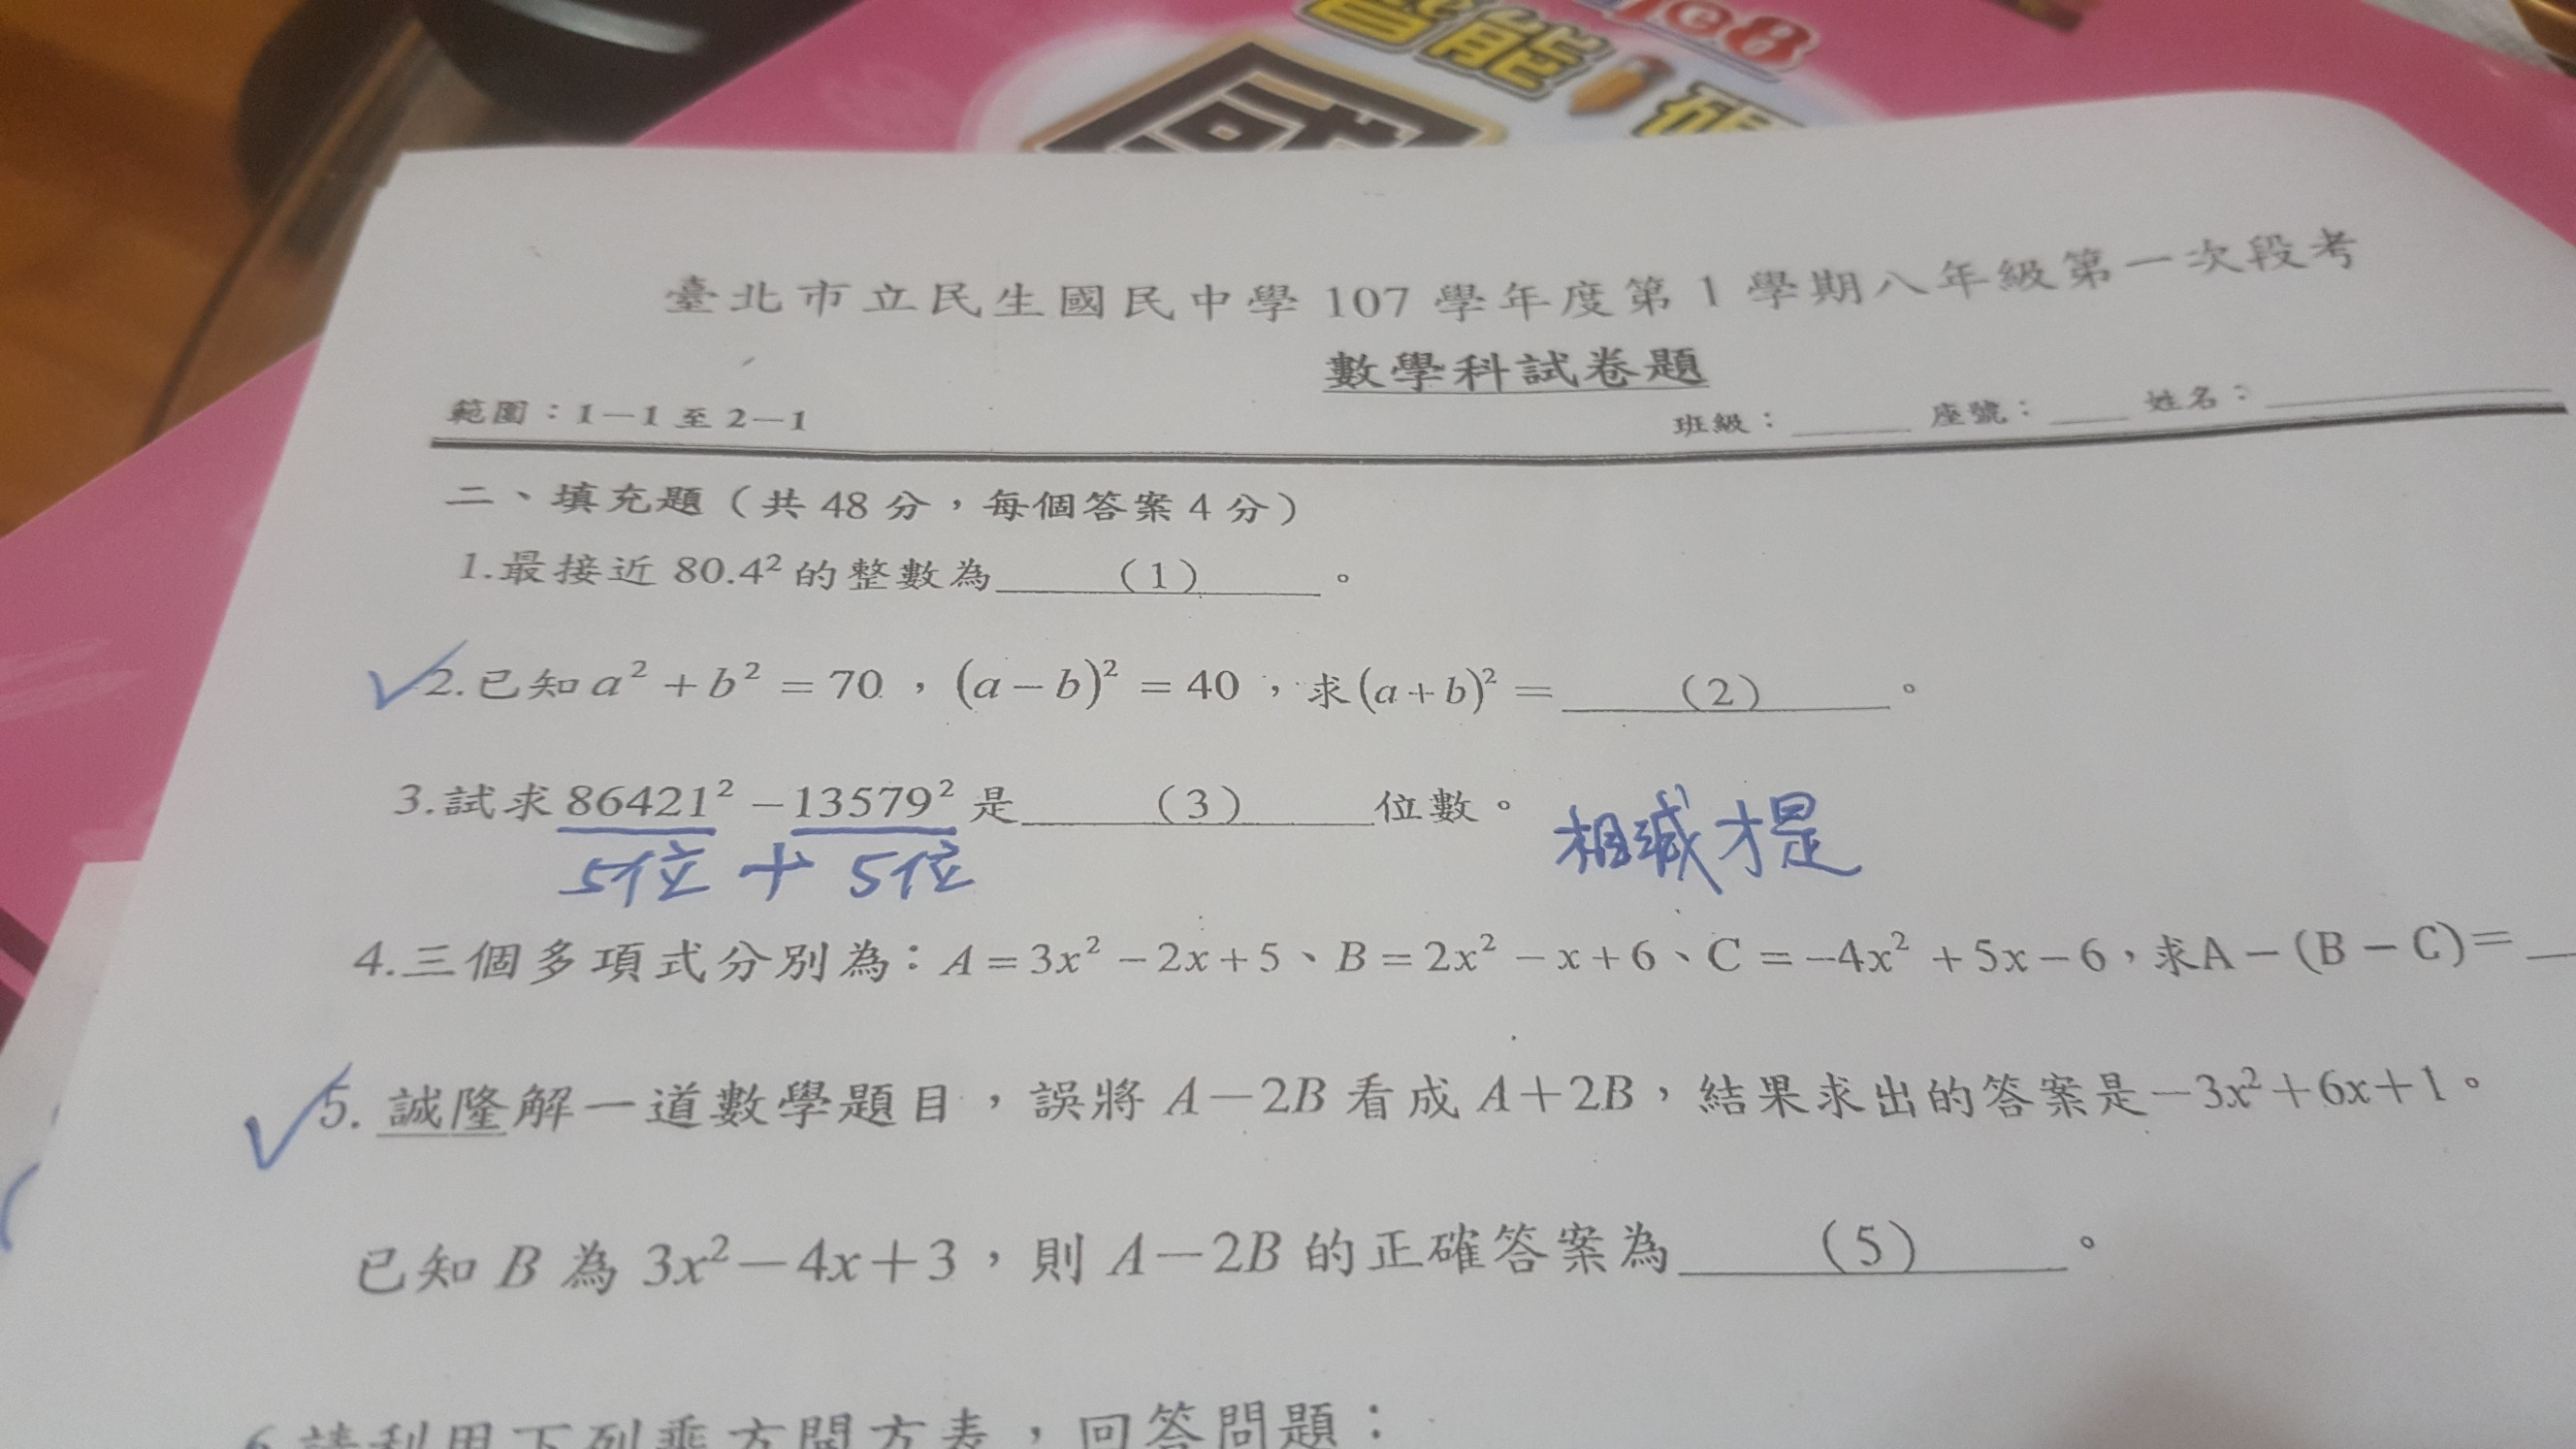 智能
臺北市立民生國民中學107學年度第1學期八年級第一次段考
數學科試卷題
範圍：1－1至2－1 班級：______ 座號：____ 姓名：__________
二、填充題（共48分，每個答案4分）
1.最接近80.4²的整數為____（1）____。
✓2.已知a²+b²=70，(a−b)²=40，求(a+b)²=____（2）____。
3.試求86421²−13579²是____（3）____位數。 相減才是
5位 + 5位
4.三個多項式分別為：A=3x²−2x+5、B=2x²−x+6、C=−4x²+5x−6，求A−(B−C)=__
✓5. 誠隆解一道數學題目，誤將A－2B看成A＋2B，結果求出的答案是－3x²＋6x＋1。
已知B為3x²－4x＋3，則A－2B的正確答案為____（5）____。
6.請利用下列乘方開方表，回答問題：